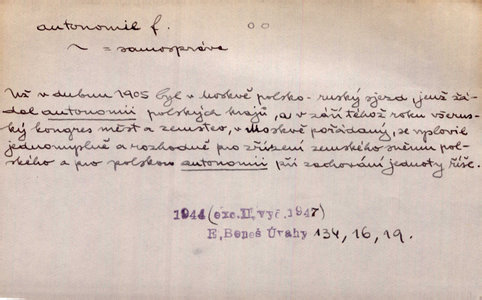 autonomie f.
~ = samospráva
Už v dubnu 1905 byl v Moskvě polsko-ruský sjezd, jenž žá-
dal autonomii polských krajů, a v září téhož roku všerus-
ský kongres měst a zemstev, v Moskvě pořádaný, se vyslovil
jednomyslně a rozhodně pro zřízení zemského sněmu pol-
ského a pro polskou autonomii při zachování jednoty říše.
1944 (exc. II, vyč. 1947)
E, Beneš Úvahy 134, 16, 19.